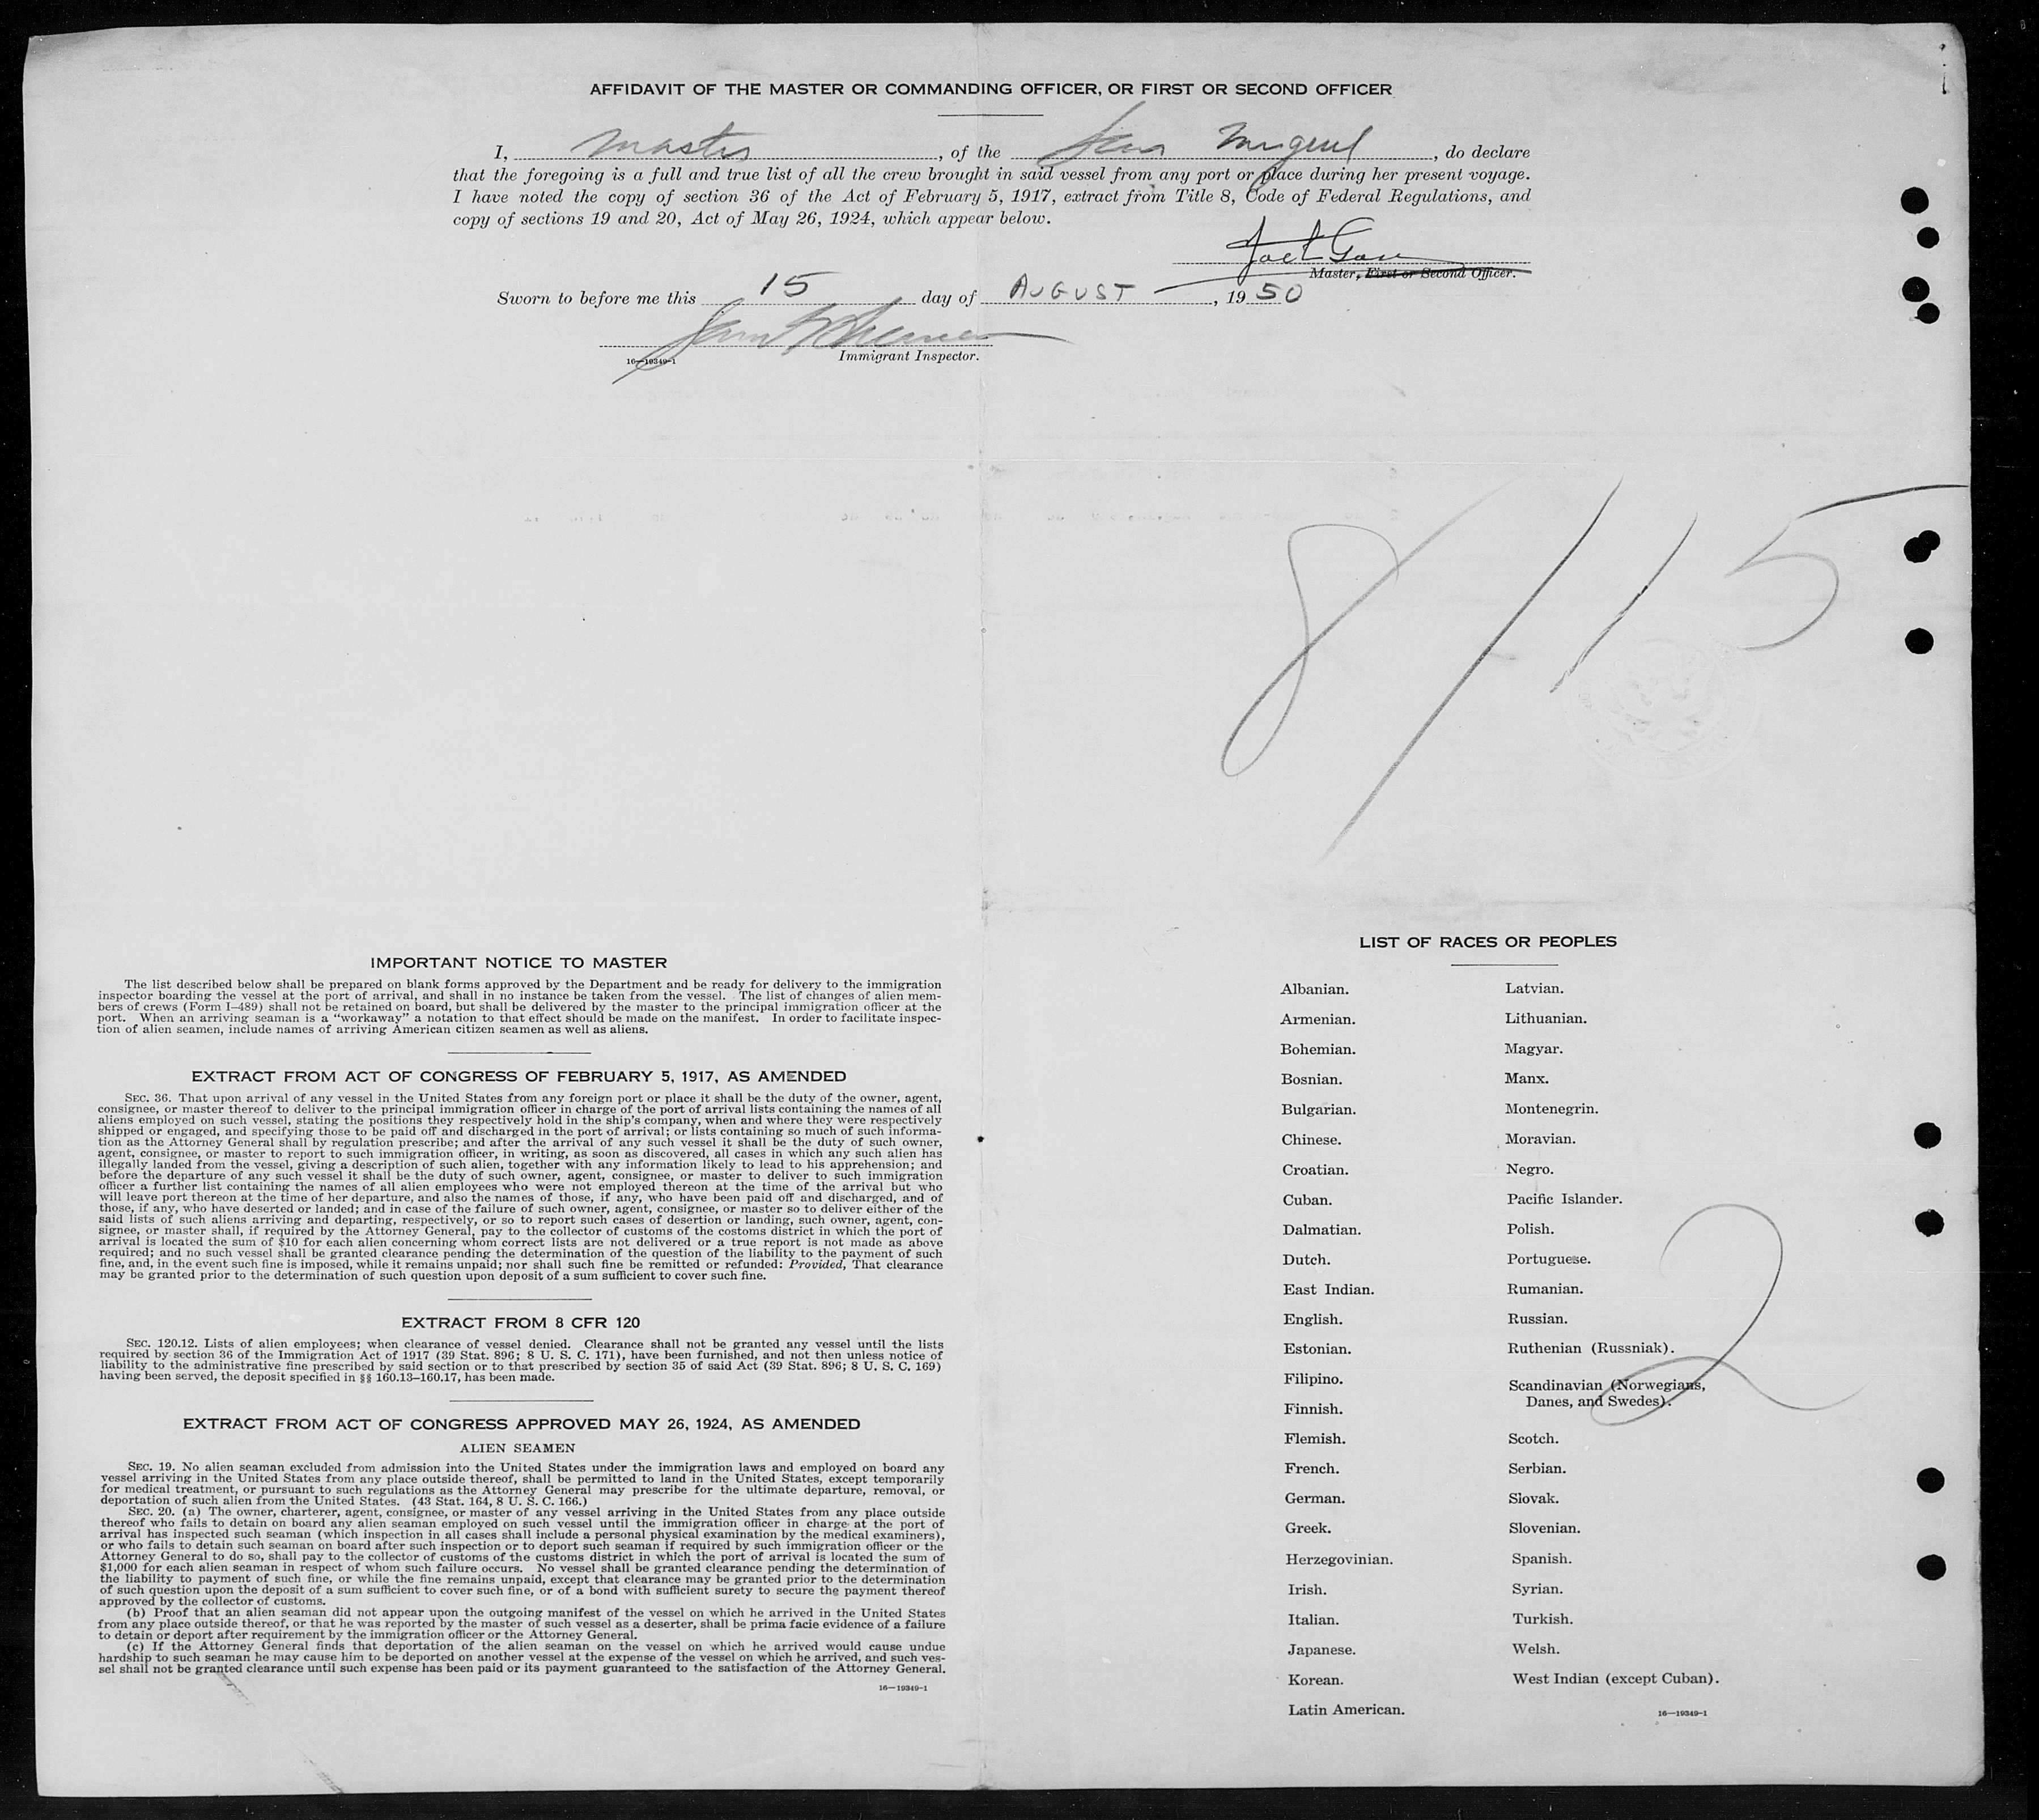 AFFIDAVIT OF THE MASTER OR COMMANDING OFFICER, OR FIRST OR SECOND OFFICER
I, Master, of the , do declare
that the foregoing is a full and true list of all the crew brought in said vessel from any port or place during her present voyage.
I have noted the copy of section 36 of the Act of February 5, 1917, extract from Title 8, Code of Federal Regulations, and
copy of sections 19 and 20, Act of May 26, 1924, which appear below.
Master, First or Second Officer.
Sworn to before me this 15 day of AUGUST, 19 50
16—19349-1 Immigrant Inspector.
8/15
IMPORTANT NOTICE TO MASTER
The list described below shall be prepared on blank forms approved by the Department and be ready for delivery to the immigration
inspector boarding the vessel at the port of arrival, and shall in no instance be taken from the vessel. The list of changes of alien mem-
bers of crews (Form I-489) shall not be retained on board, but shall be delivered by the master to the principal immigration officer at the
port. When an arriving seaman is a “workaway” a notation to that effect should be made on the manifest. In order to facilitate inspec-
tion of alien seamen, include names of arriving American citizen seamen as well as aliens.
EXTRACT FROM ACT OF CONGRESS OF FEBRUARY 5, 1917, AS AMENDED
SEC. 36. That upon arrival of any vessel in the United States from any foreign port or place it shall be the duty of the owner, agent,
consignee, or master thereof to deliver to the principal immigration officer in charge of the port of arrival lists containing the names of all
aliens employed on such vessel, stating the positions they respectively hold in the ship's company, when and where they were respectively
shipped or engaged, and specifying those to be paid off and discharged in the port of arrival; or lists containing so much of such informa-
tion as the Attorney General shall by regulation prescribe; and after the arrival of any such vessel it shall be the duty of such owner,
agent, consignee, or master to report to such immigration officer, in writing, as soon as discovered, all cases in which any such alien has
illegally landed from the vessel, giving a description of such alien, together with any information likely to lead to his apprehension; and
before the departure of any such vessel it shall be the duty of such owner, agent, consignee, or master to deliver to such immigration
officer a further list containing the names of all alien employees who were not employed thereon at the time of the arrival but who
will leave port thereon at the time of her departure, and also the names of those, if any, who have been paid off and discharged, and of
those, if any, who have deserted or landed; and in case of the failure of such owner, agent, consignee, or master so to deliver either of the
said lists of such aliens arriving and departing, respectively, or so to report such cases of desertion or landing, such owner, agent, con-
signee, or master shall, if required by the Attorney General, pay to the collector of customs of the costoms district in which the port of
arrival is located the sum of $10 for each alien concerning whom correct lists are not delivered or a true report is not made as above
required; and no such vessel shall be granted clearance pending the determination of the question of the liability to the payment of such
fine, and, in the event such fine is imposed, while it remains unpaid; nor shall such fine be remitted or refunded: Provided, That clearance
may be granted prior to the determination of such question upon deposit of a sum sufficient to cover such fine.
EXTRACT FROM 8 CFR 120
SEC. 120.12. Lists of alien employees; when clearance of vessel denied. Clearance shall not be granted any vessel until the lists
required by section 36 of the Immigration Act of 1917 (39 Stat. 896; 8 U. S. C. 171), have been furnished, and not then unless notice of
liability to the administrative fine prescribed by said section or to that prescribed by section 35 of said Act (39 Stat. 896; 8 U. S. C. 169)
having been served, the deposit specified in §§ 160.13–160.17, has been made.
EXTRACT FROM ACT OF CONGRESS APPROVED MAY 26, 1924, AS AMENDED
ALIEN SEAMEN
SEC. 19. No alien seaman excluded from admission into the United States under the immigration laws and employed on board any
vessel arriving in the United States from any place outside thereof, shall be permitted to land in the United States, except temporarily
for medical treatment, or pursuant to such regulations as the Attorney General may prescribe for the ultimate departure, removal, or
deportation of such alien from the United States. (43 Stat. 164, 8 U. S. C. 166.)
SEC. 20. (a) The owner, charterer, agent, consignee, or master of any vessel arriving in the United States from any place outside
thereof who fails to detain on board any alien seaman employed on such vessel until the immigration officer in charge at the port of
arrival has inspected such seaman (which inspection in all cases shall include a personal physical examination by the medical examiners),
or who fails to detain such seaman on board after such inspection or to deport such seaman if required by such immigration officer or the
Attorney General to do so, shall pay to the collector of customs of the customs district in which the port of arrival is located the sum of
$1,000 for each alien seaman in respect of whom such failure occurs. No vessel shall be granted clearance pending the determination of
the liability to payment of such fine, or while the fine remains unpaid, except that clearance may be granted prior to the determination
of such question upon the deposit of a sum sufficient to cover such fine, or of a bond with sufficient surety to secure the payment thereof
approved by the collector of customs.
(b) Proof that an alien seaman did not appear upon the outgoing manifest of the vessel on which he arrived in the United States
from any place outside thereof, or that he was reported by the master of such vessel as a deserter, shall be prima facie evidence of a failure
to detain or deport after requirement by the immigration officer or the Attorney General.
(c) If the Attorney General finds that deportation of the alien seaman on the vessel on which he arrived would cause undue
hardship to such seaman he may cause him to be deported on another vessel at the expense of the vessel on which he arrived, and such ves-
sel shall not be granted clearance until such expense has been paid or its payment guaranteed to the satisfaction of the Attorney General.
16—19349-1
LIST OF RACES OR PEOPLES
Albanian.
Armenian.
Bohemian.
Bosnian.
Bulgarian.
Chinese.
Croatian.
Cuban.
Dalmatian.
Dutch.
East Indian.
English.
Estonian.
Filipino.
Finnish.
Flemish.
French.
German.
Greek.
Herzegovinian.
Irish.
Italian.
Japanese.
Korean.
Latin American.
Latvian.
Lithuanian.
Magyar.
Manx.
Montenegrin.
Moravian.
Negro.
Pacific Islander.
Polish.
Portuguese.
Rumanian.
Russian.
Ruthenian (Russniak).
Scandinavian (Norwegians,
Danes, and Swedes).
Scotch.
Serbian.
Slovak.
Slovenian.
Spanish.
Syrian.
Turkish.
Welsh.
West Indian (except Cuban).
16—19349-1
2